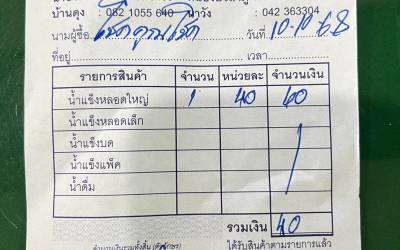 บ้านดุง : 082 1055 640 นาวัง : 042 363304
นามผู้ซื้อ โชคคูณโชค วันที่ 10-10-68
ที่อยู่ เวลา
รายการสินค้า จำนวน หน่วยละ จำนวนเงิน
น้ำแข็งหลอดใหญ่ 1 40 60
น้ำแข็งหลอดเล็ก
น้ำแข็งบด
น้ำแข็งแพ็ค
น้ำดื่ม
รวมเงิน 40
ได้รับสินค้าตามรายการแล้ว